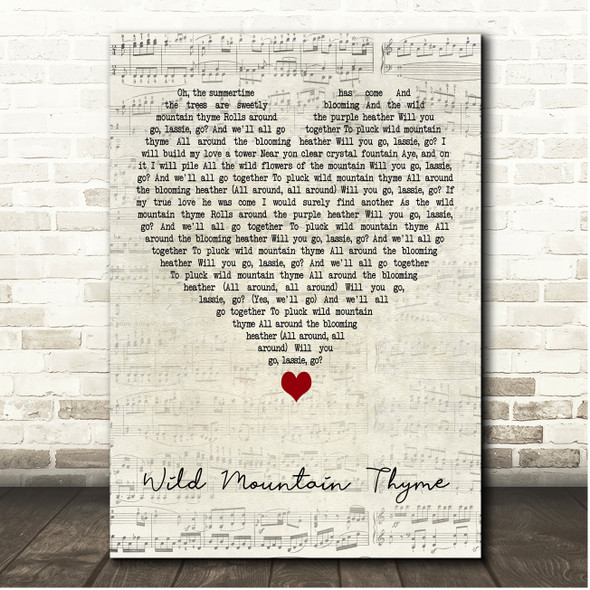 Oh, the summertime has come And
the trees are sweetly blooming And the wild
mountain thyme Rolls around the purple heather Will you
go, lassie, go? And we'll all go together To pluck wild mountain
thyme All around the blooming heather Will you go, lassie, go? I
will build my love a tower Near yon clear crystal fountain Aye, and on
it I will pile All the wild flowers of the mountain Will you go, lassie,
go? And we'll all go together To pluck wild mountain thyme All around
the blooming heather (All around, all around) Will you go, lassie, go? If
my true love he was come I would surely find another As the wild
mountain thyme Rolls around the purple heather Will you go, lassie,
go? And we'll all go together To pluck wild mountain thyme All
around the blooming heather Will you go, lassie, go? And we'll all go
together To pluck wild mountain thyme All around the blooming
heather Will you go, lassie, go? And we'll all go together
To pluck wild mountain thyme All around the blooming
heather (All around, all around) Will you go,
lassie, go? (Yes, we'll go) And we'll all
go together To pluck wild mountain
thyme All around the blooming
heather (All around, all
around) Will you
go, lassie, go?
Wild Mountain Thyme